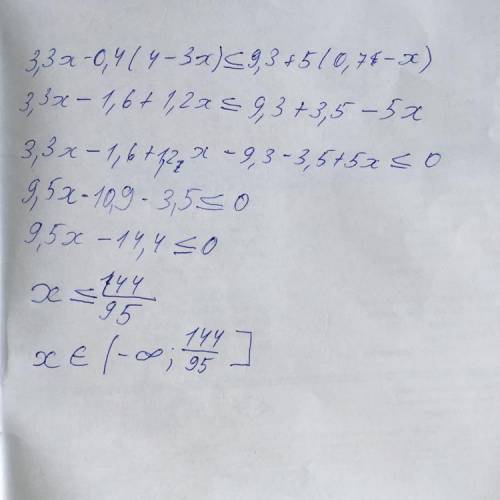 3,3x-0,4(4-3x)≤9,3+5(0,7-x)
3,3x-1,6+1,2x≤9,3+3,5-5x
3,3x-1,6+1,2x-9,3-3,5+5x≤0
9,5x-10,9-3,5≤0
9,5x-14,4≤0
x≤144/95
x∈(-∞;144/95]